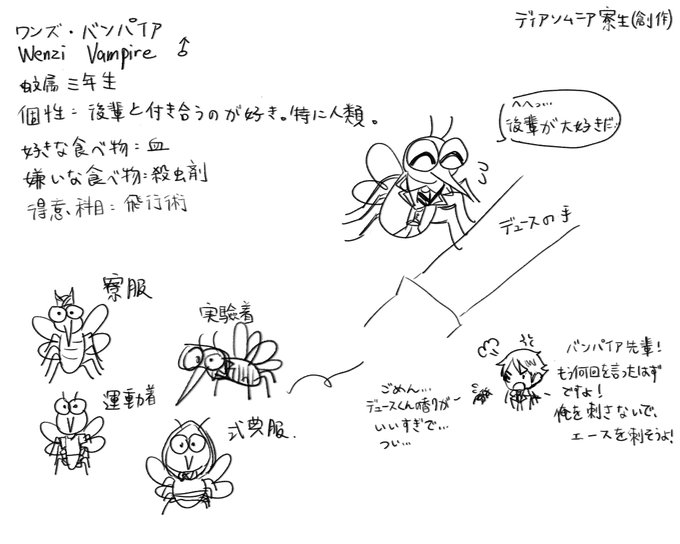 ディアソムニア寮生(創作)
ワンズ・バンパイア
Wenzi Vampire ♂
蚊属 三年生
個性：後輩と付き合うのが好き。特に人類。
好きな食べ物：血
嫌いな食べ物：殺虫剤
得意科目：飛行術
へへっ…
後輩が大好きだ。
デュースの手
寮服
実験着
運動着
式典服
ごめん…
デュースくんの香りが
いいすぎで…
つい…
バンパイア先輩！
もう何回を言ったはず
ですよ！
俺を刺さないで、
エースを刺そうよ！